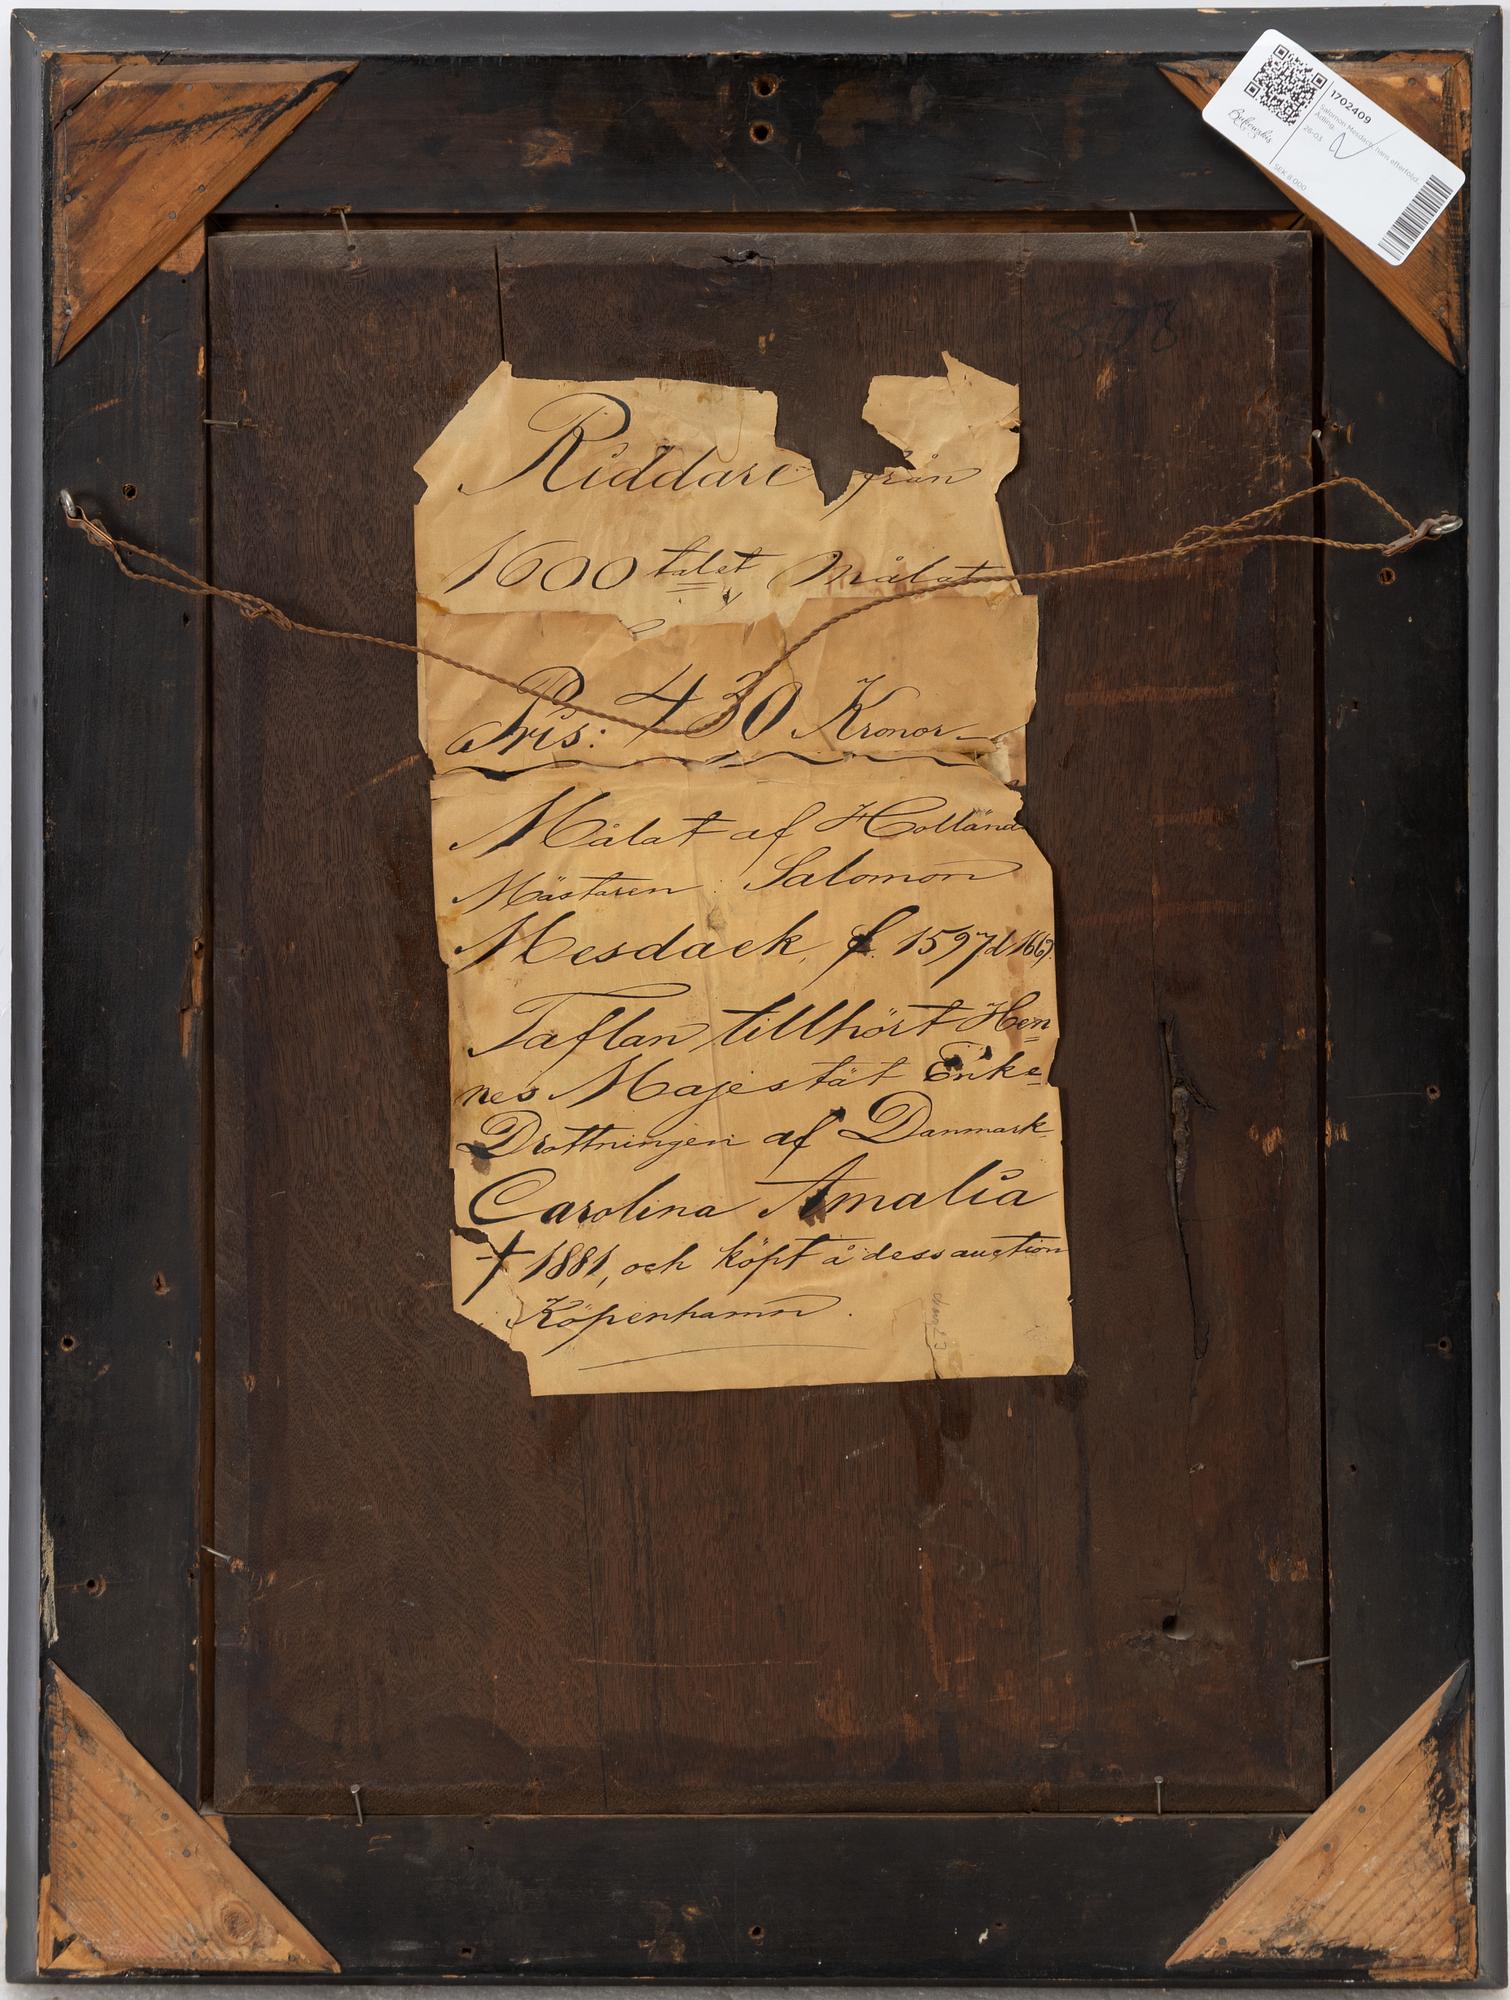 1702409
Salomon Mesdach, hans efterföljd
Adling.
26-03
SEK 8 000
Bukowskis
Riddare från
1600 talet Målat
Pris: 430 Kronor
Målat af Holländ
Mästaren Salomon
Mesdack, f. 1597 d 166
Taflan tillhört Hen=
nes Majestät Enke=
Drottningen af Danmark
Carolina Amalia
† 1881, och köpt å dess auction
Köpenhamn.